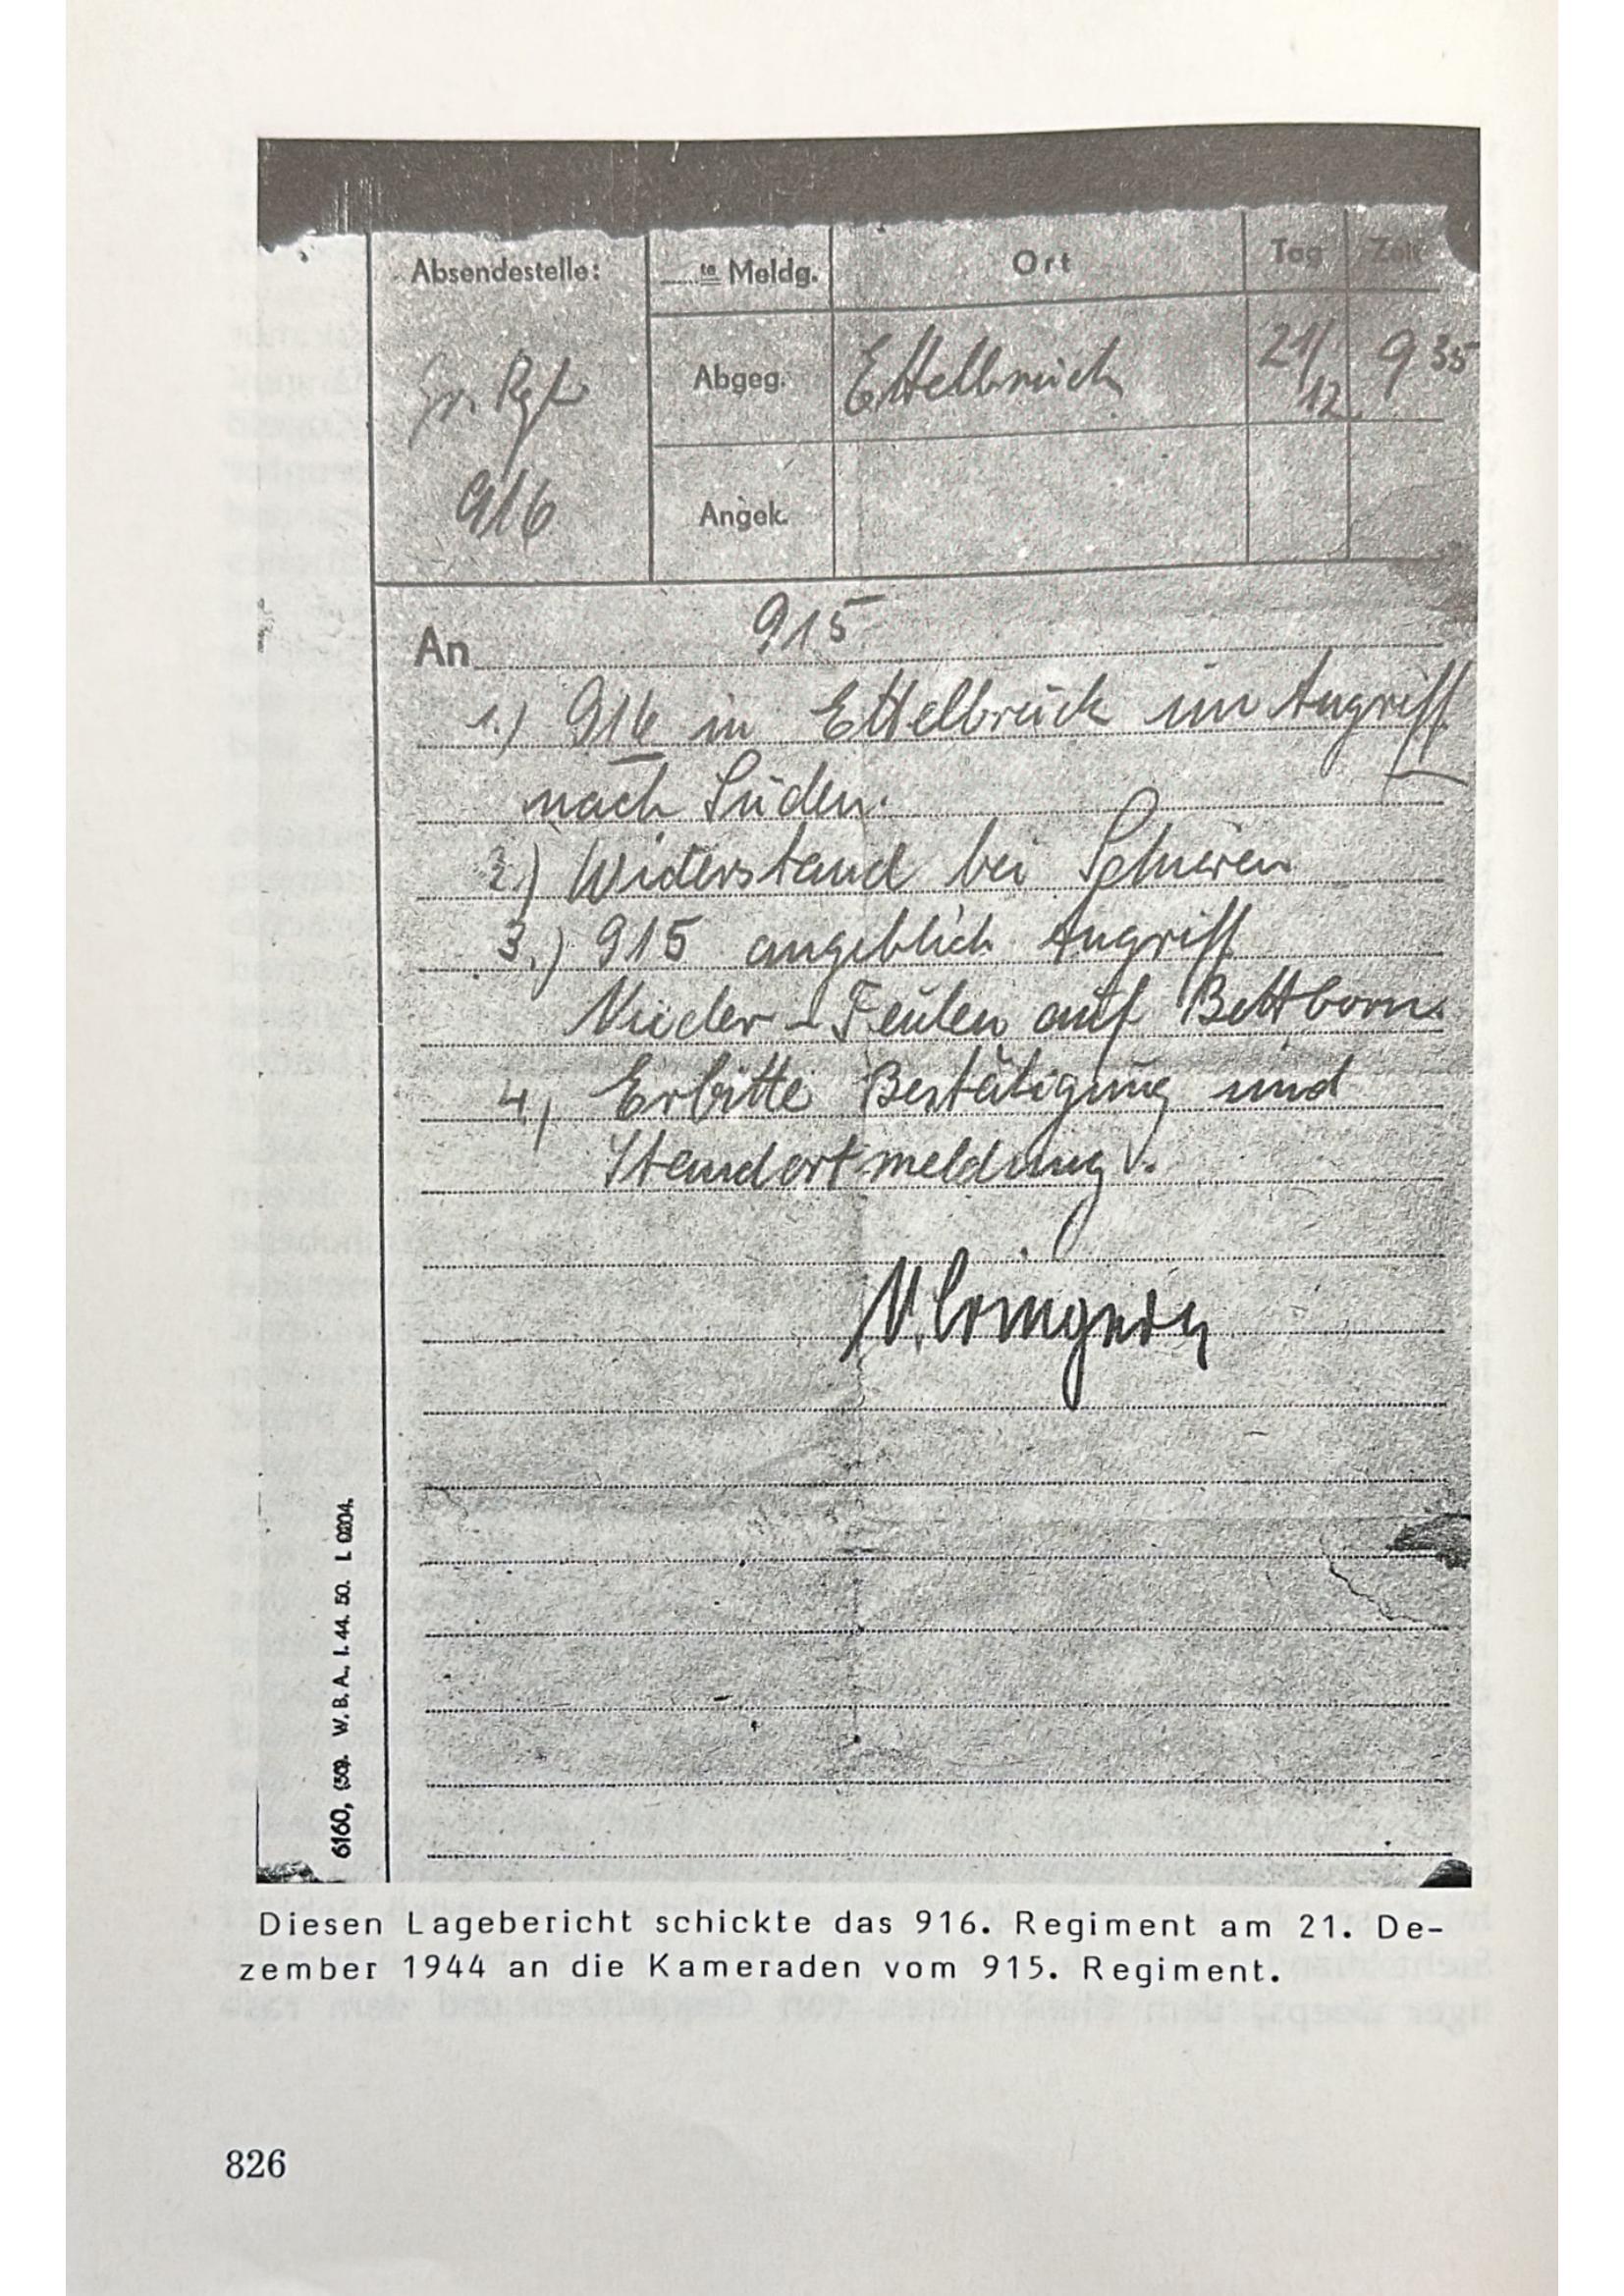 Absendestelle: ......te Meldg. Ort Tag Zeit
Gr. Rgt Abgeg. Ettelbrück 21/12. 9 35
916 Angek.
An 915
1.) 916 in Ettelbrück im Angriff
nach Süden.
2.) Widerstand bei Schieren
3.) 915 angeblich Angriff
Nieder-Feulen auf Bettborn.
4, Erbitte Bestätigung und
Standortmeldung.
6160, (59). W. B. A. I. 44. 50. L 0204.
Diesen Lagebericht schickte das 916. Regiment am 21. De-
zember 1944 an die Kameraden vom 915. Regiment.
826